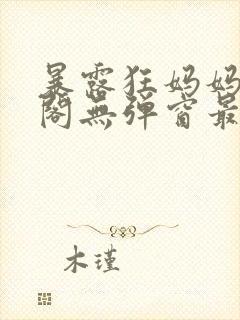 暴露狂妈妈
阁無弹窗最
木瑾